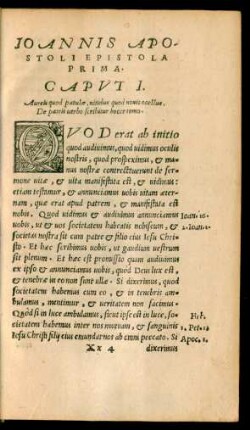 IOANNIS APO-
STOLI EPISTOLA
PRIMA.
CAPVT I.
De patris verbo scribitur hocce
QVOD erat ab initio
quod audiuimus, quod vidimus oculis
nostris, quod prospeximus, & ma-
nus nostræ contrectauerunt de ser-
mone vitæ, & vita manifestata est, & vidimus:
etiam testamur, & annunciamus vobis vitam æter-
nam, quæ erat apud patrem, & manifestata est
nobis. Quod vidimus & audiuimus annunciamus
Ioan.
uobis, ut & uos societatem habeatis nobiscum, & so-
1. Ioan.
cietas nostra sit cum patre & filio eius Iesu Chri-
sto. Et hæc scribimus uobis, ut gaudium uestrum
sit plenum. Et hæc est promissio quam audiuimus
ex ipso & annunciamus uobis, quod Deus lux est,
& tenebræ in eo non sunt ullæ. Si dixerimus, quod
societatem habemus cum eo, & in tenebris am-
bulamus, mentimur, & veritatem non facimus.
Quòd si in luce ambulamus, sicut ipse est in luce, so-
cietatem habemus inter nos mutuam, & sanguinis
1. Pet. 1
Iesu Christi filij eius emundat nos ab omni peccato. Si
Apoc. 1.
Xx 4
dixerimus